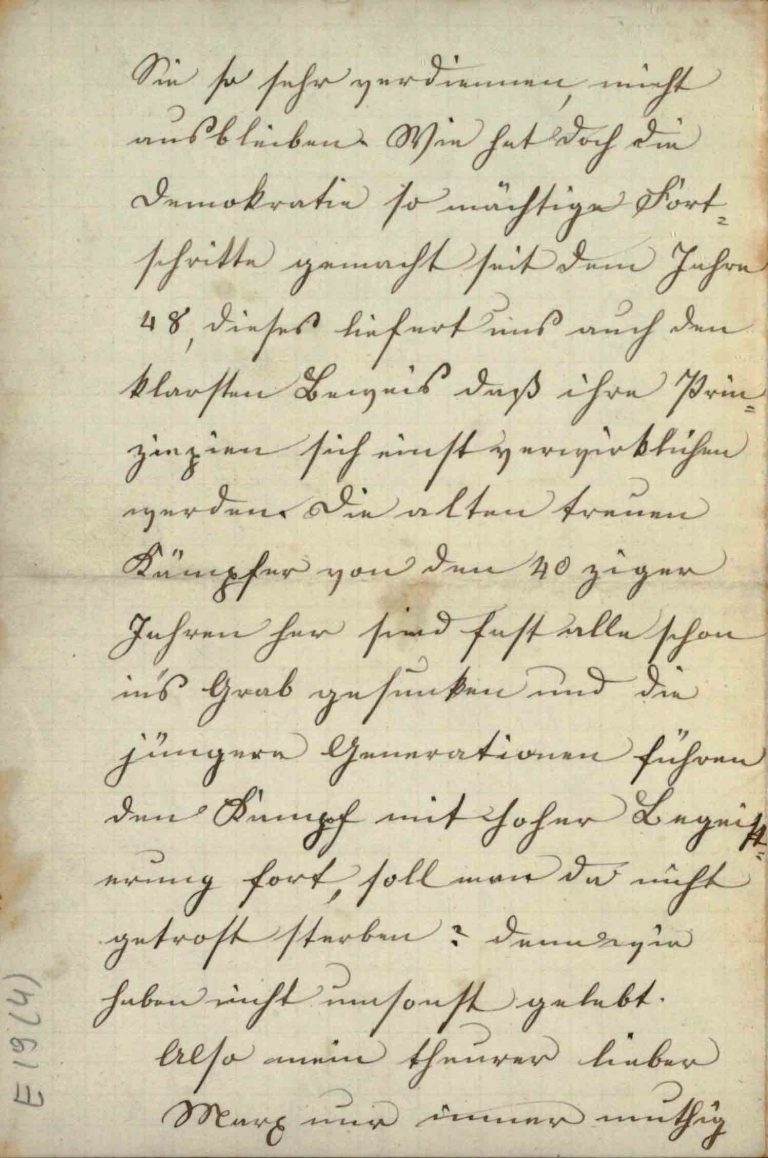 Sie so sehr verdiennen, nicht
ausbleiben. Wie hat doch die
Demokratie so mächtige Fort-
schritte gemacht seit dem Jahre
48, dieses liefert uns auch den
klarsten Beweis daß ihre Prin-
ziepien sich einst verwirklichen
werden. Die alten treuen
Kämpfer von den 40 ziger
Jahren her sind fast alle schon
in's Grab gesunken und die
jüngere Generationen führen
den Kampf mit hoher Begeist-
erung fort, soll man da nicht
getrost sterben? denn wir
haben nicht umsonst gelebt.
Also mein theurer lieber
Marx nur immer muthig
E 19 (4)